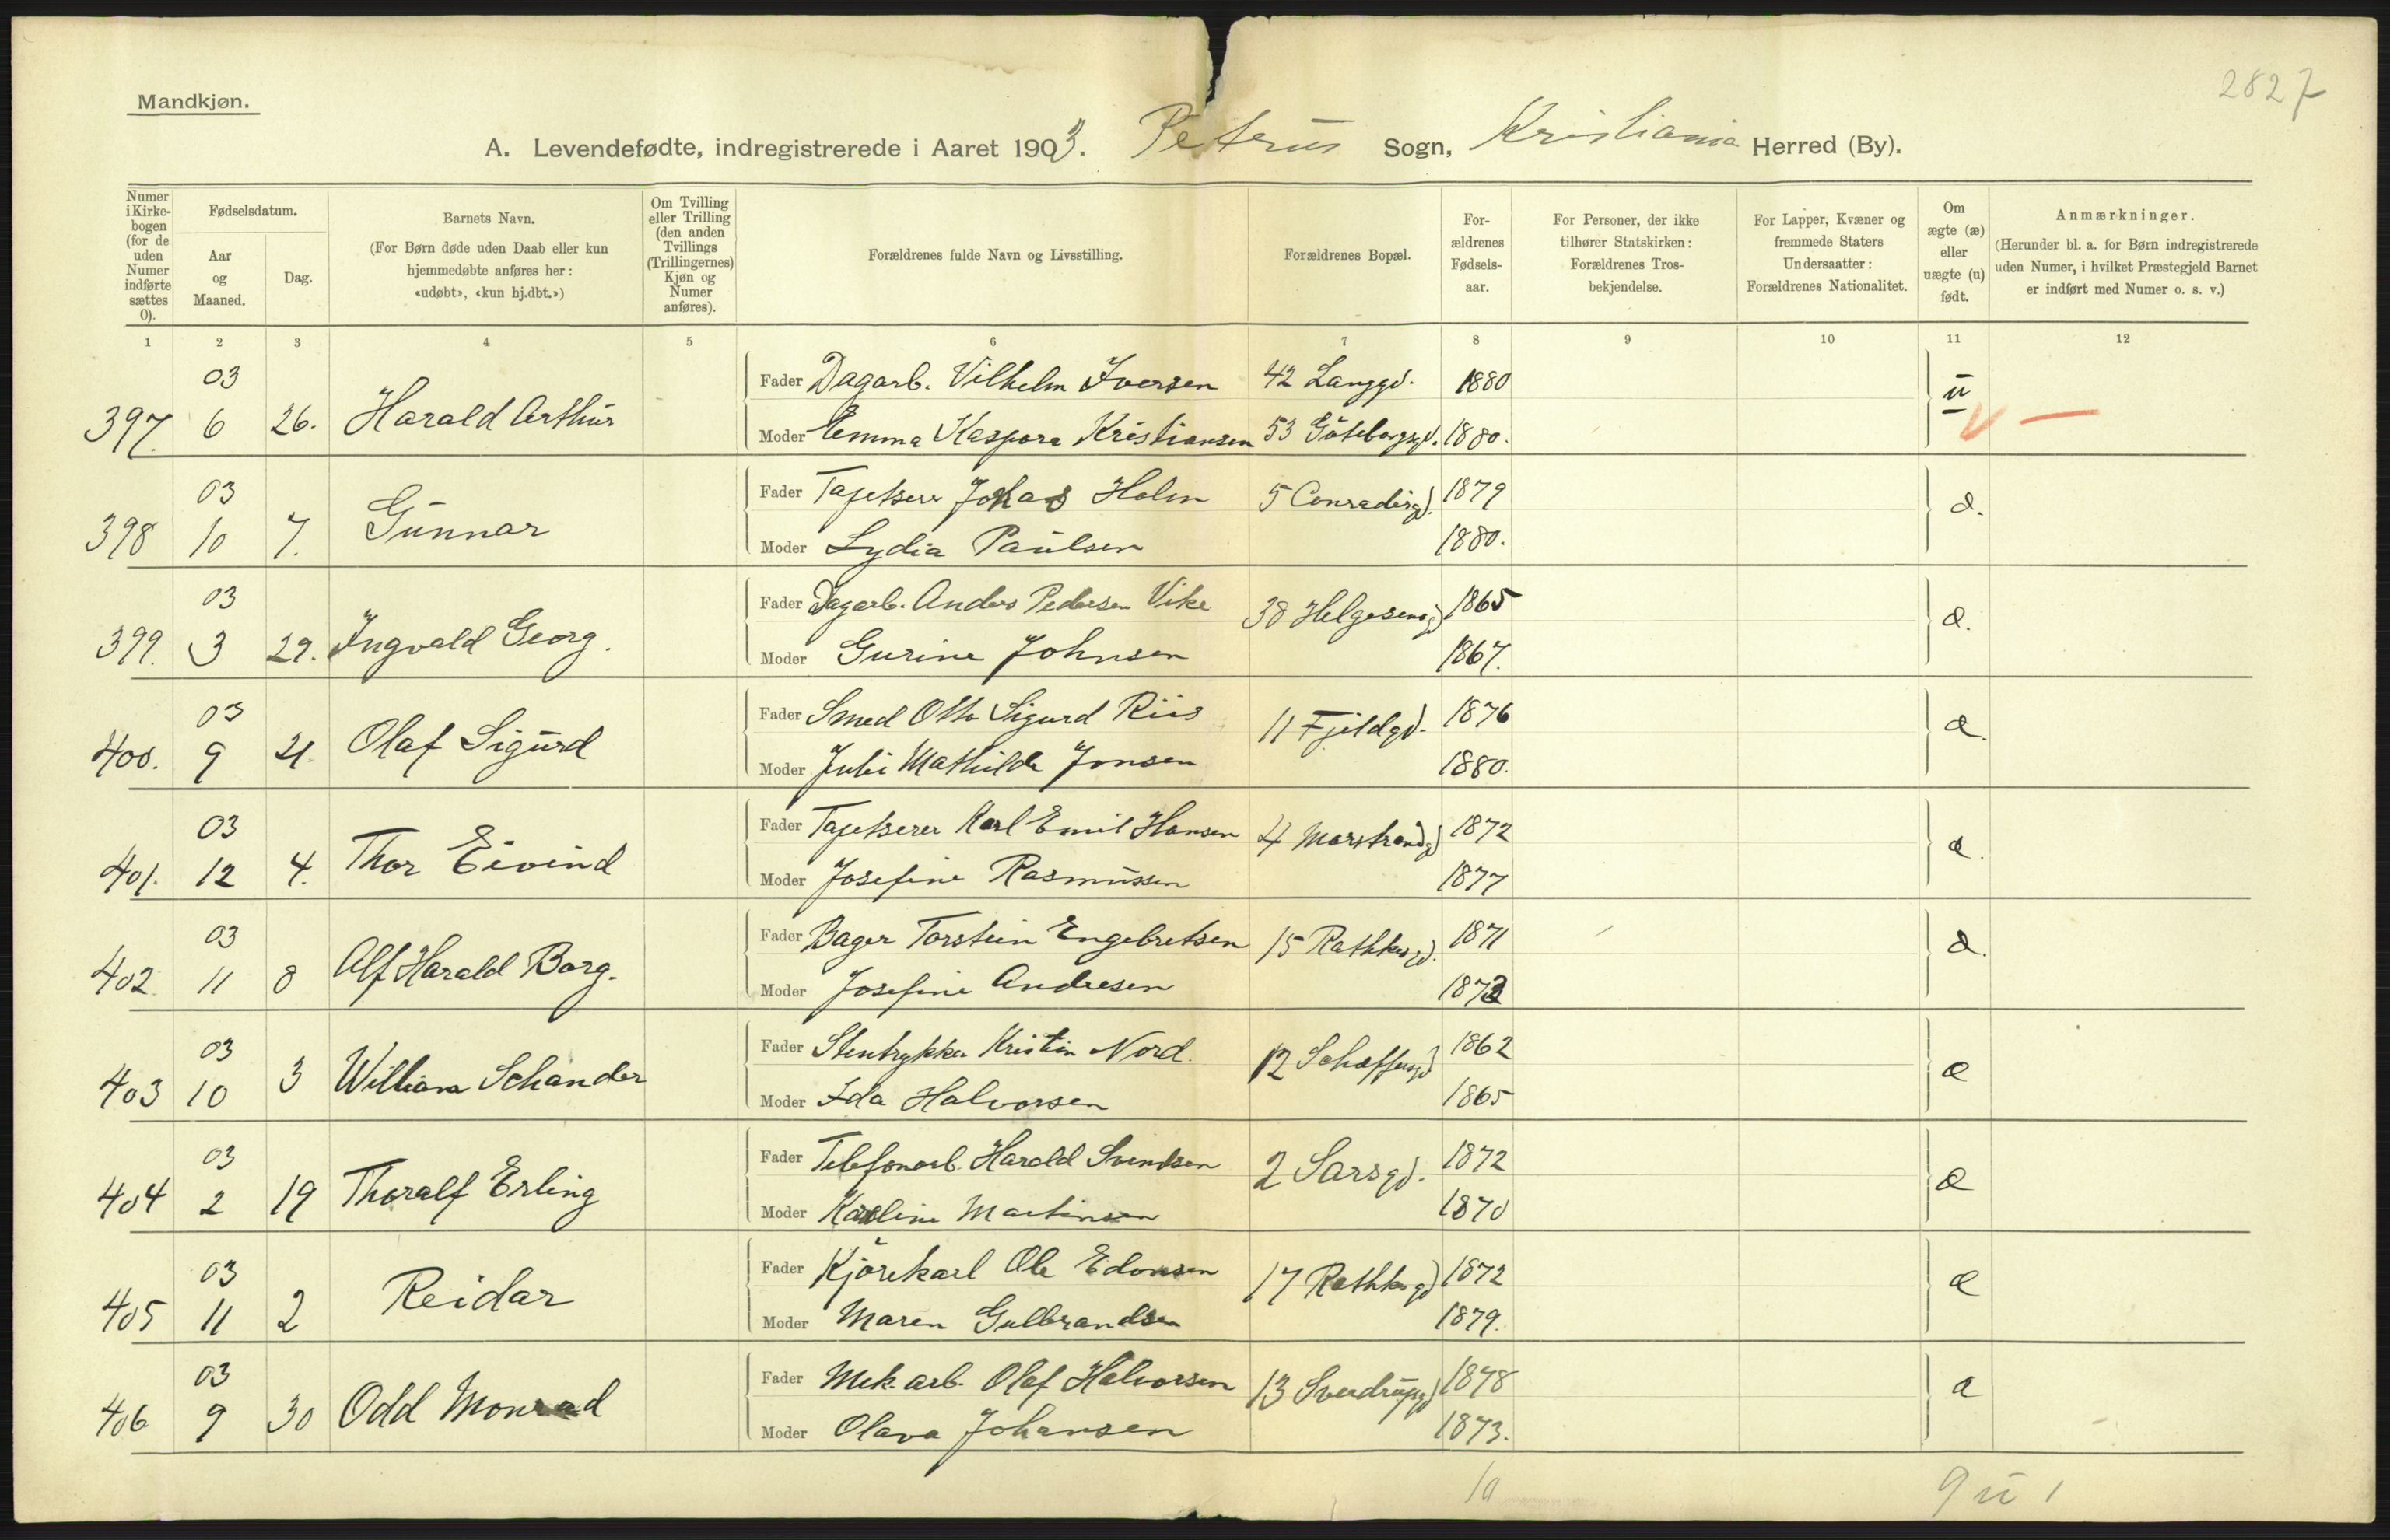 2827
Mandkjøn.
A. Levendefødte, indregistrerede i Aaret 1903. Petrus Sogn, Kristiania Herred (By).
Numer i Kirkebogen (for de uden Numer indførte sættes 0).
Fødselsdatum.
Aar og Maaned.
Dag.
Barnets Navn.
(For Børn døde uden Daab eller kun hjemmedøbte anføres her: «udøbt», «kun hj.dbt.»)
Om Tvilling eller Trilling (den anden Tvillings (Trillingernes) Kjøn og Numer anføres).
Forældrenes fulde Navn og Livsstilling.
Forældrenes Bopæl.
Forældrenes Fødselsaar.
For Personer, der ikke tilhører Statskirken: Forældrenes Trosbekjendelse.
For Lapper, Kvæner og fremmede Staters Undersaatter: Forældrenes Nationalitet.
Om ægte (æ) eller uægte (u) født.
Anmærkninger.
(Herunder bl. a. for Børn indregistrerede uden Numer, i hvilket Præstegjeld Barnet er indført med Numer o. s. v.)
1 2 3 4 5 6 7 8 9 10 11 12
03 Fader Dagarb. Vilhelm Iversen 42 Langgd. 1880
397. 6 26. Harald Arthur Moder Emma Kaspara Kristiansen 53 Göteborggd. 1880. u
03 Fader Tapetserer Johas Holm 5 Conradisgd. 1879
398 10 7. Gunnar Moder Lydia Paulsen 1880. æ.
03 Fader Dagarb. Anders Pedersen Vike 38 Helgesensgd 1865
399. 3 29. Ingvald Georg. Moder Gurine Johnsen 1867. æ.
03 Fader Smed Otto Sigurd Riis 11 Fjeldgd. 1876
400. 9 21. Olaf Sigurd Moder Julie Mathilde Jonsen 1880. æ.
03 Fader Tapetserer Karl Emil Hansen 4 Marstrandgd 1872
401. 12 4. Thor Eivind Moder Josefine Rasmussen 1877 æ.
03 Fader Bager Torstein Engebretsen 15 Rathkesgd. 1871
402 11 8 Alf Harald Borg. Moder Josefine Andresen 1873 æ.
03 Fader Stentrykker Kristian Nord. 12 Schæffersgd 1862
403 10 3 William Schander Moder Ida Halvorsen 1865 æ
03 Fader Telefonarb. Harald Svendsen 2 Sarsgd. 1872
404 2 19 Thoralf Erling Moder Karoline Martinsen 1870 æ
03 Fader Kjørekarl Ole Edvardsen 17 Rathkesgd 1872
405 11 2 Reidar Moder Maren Gulbrandsen 1879. æ
03 Fader Mek. arb. Olaf Halvorsen 13 Sverdrupsgd 1878
406 9 30 Odd Monrad Moder Olava Johansen 1873. æ
10 9 u 1